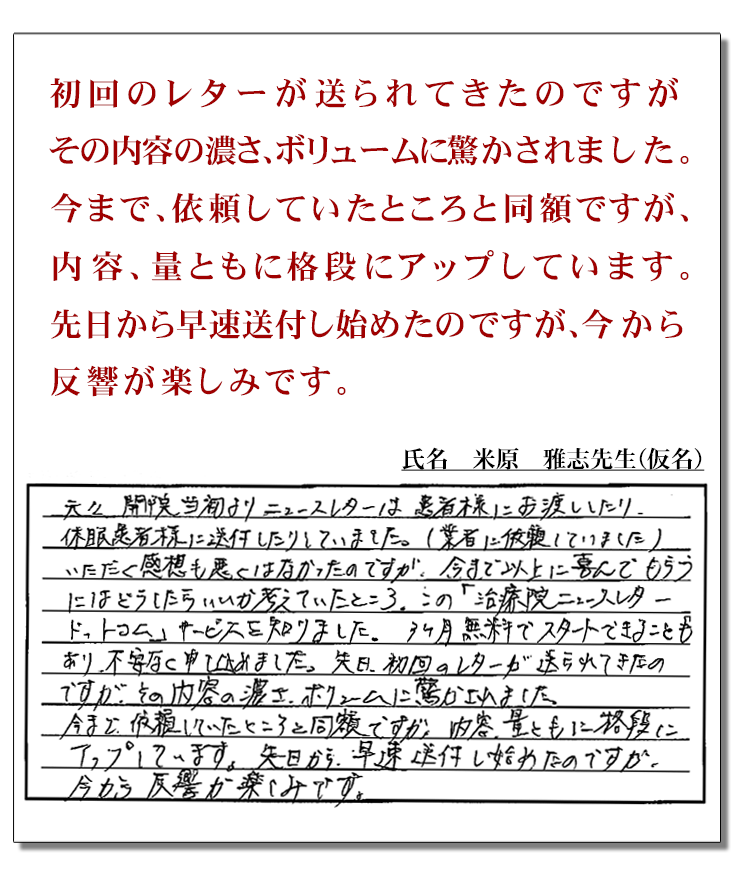 初回のレターが送られてきたのですが
その内容の濃さ、ボリュームに驚かされました。
今まで、依頼していたところと同額ですが、
内容、量ともに格段にアップしています。
先日から早速送付し始めたのですが、今から
反響が楽しみです。
氏名　米原　雅志先生（仮名）
元々 開院当初よりニュースレターは 患者様にお渡ししたり、
休眠患者様に送付したりしていました。（業者に依頼していました）
いただく感想も悪くはなかったのですが、今まで以上に喜んでもらう
にはどうしたらいいか考えていたところ、この「治療院ニュースレター
ドットコム」サービスを知りました。 3ヶ月無料でスタートできることも
あり、不安なく申し込めました。先日、初回のレターが送られてきたの
ですが、その内容の濃さ、ボリュームに驚かされました。
今まで、依頼していたところと同額ですが、内容、量ともに格段に
アップしています。先日から、早速送付し始めたのですが、
今から反響が楽しみです。